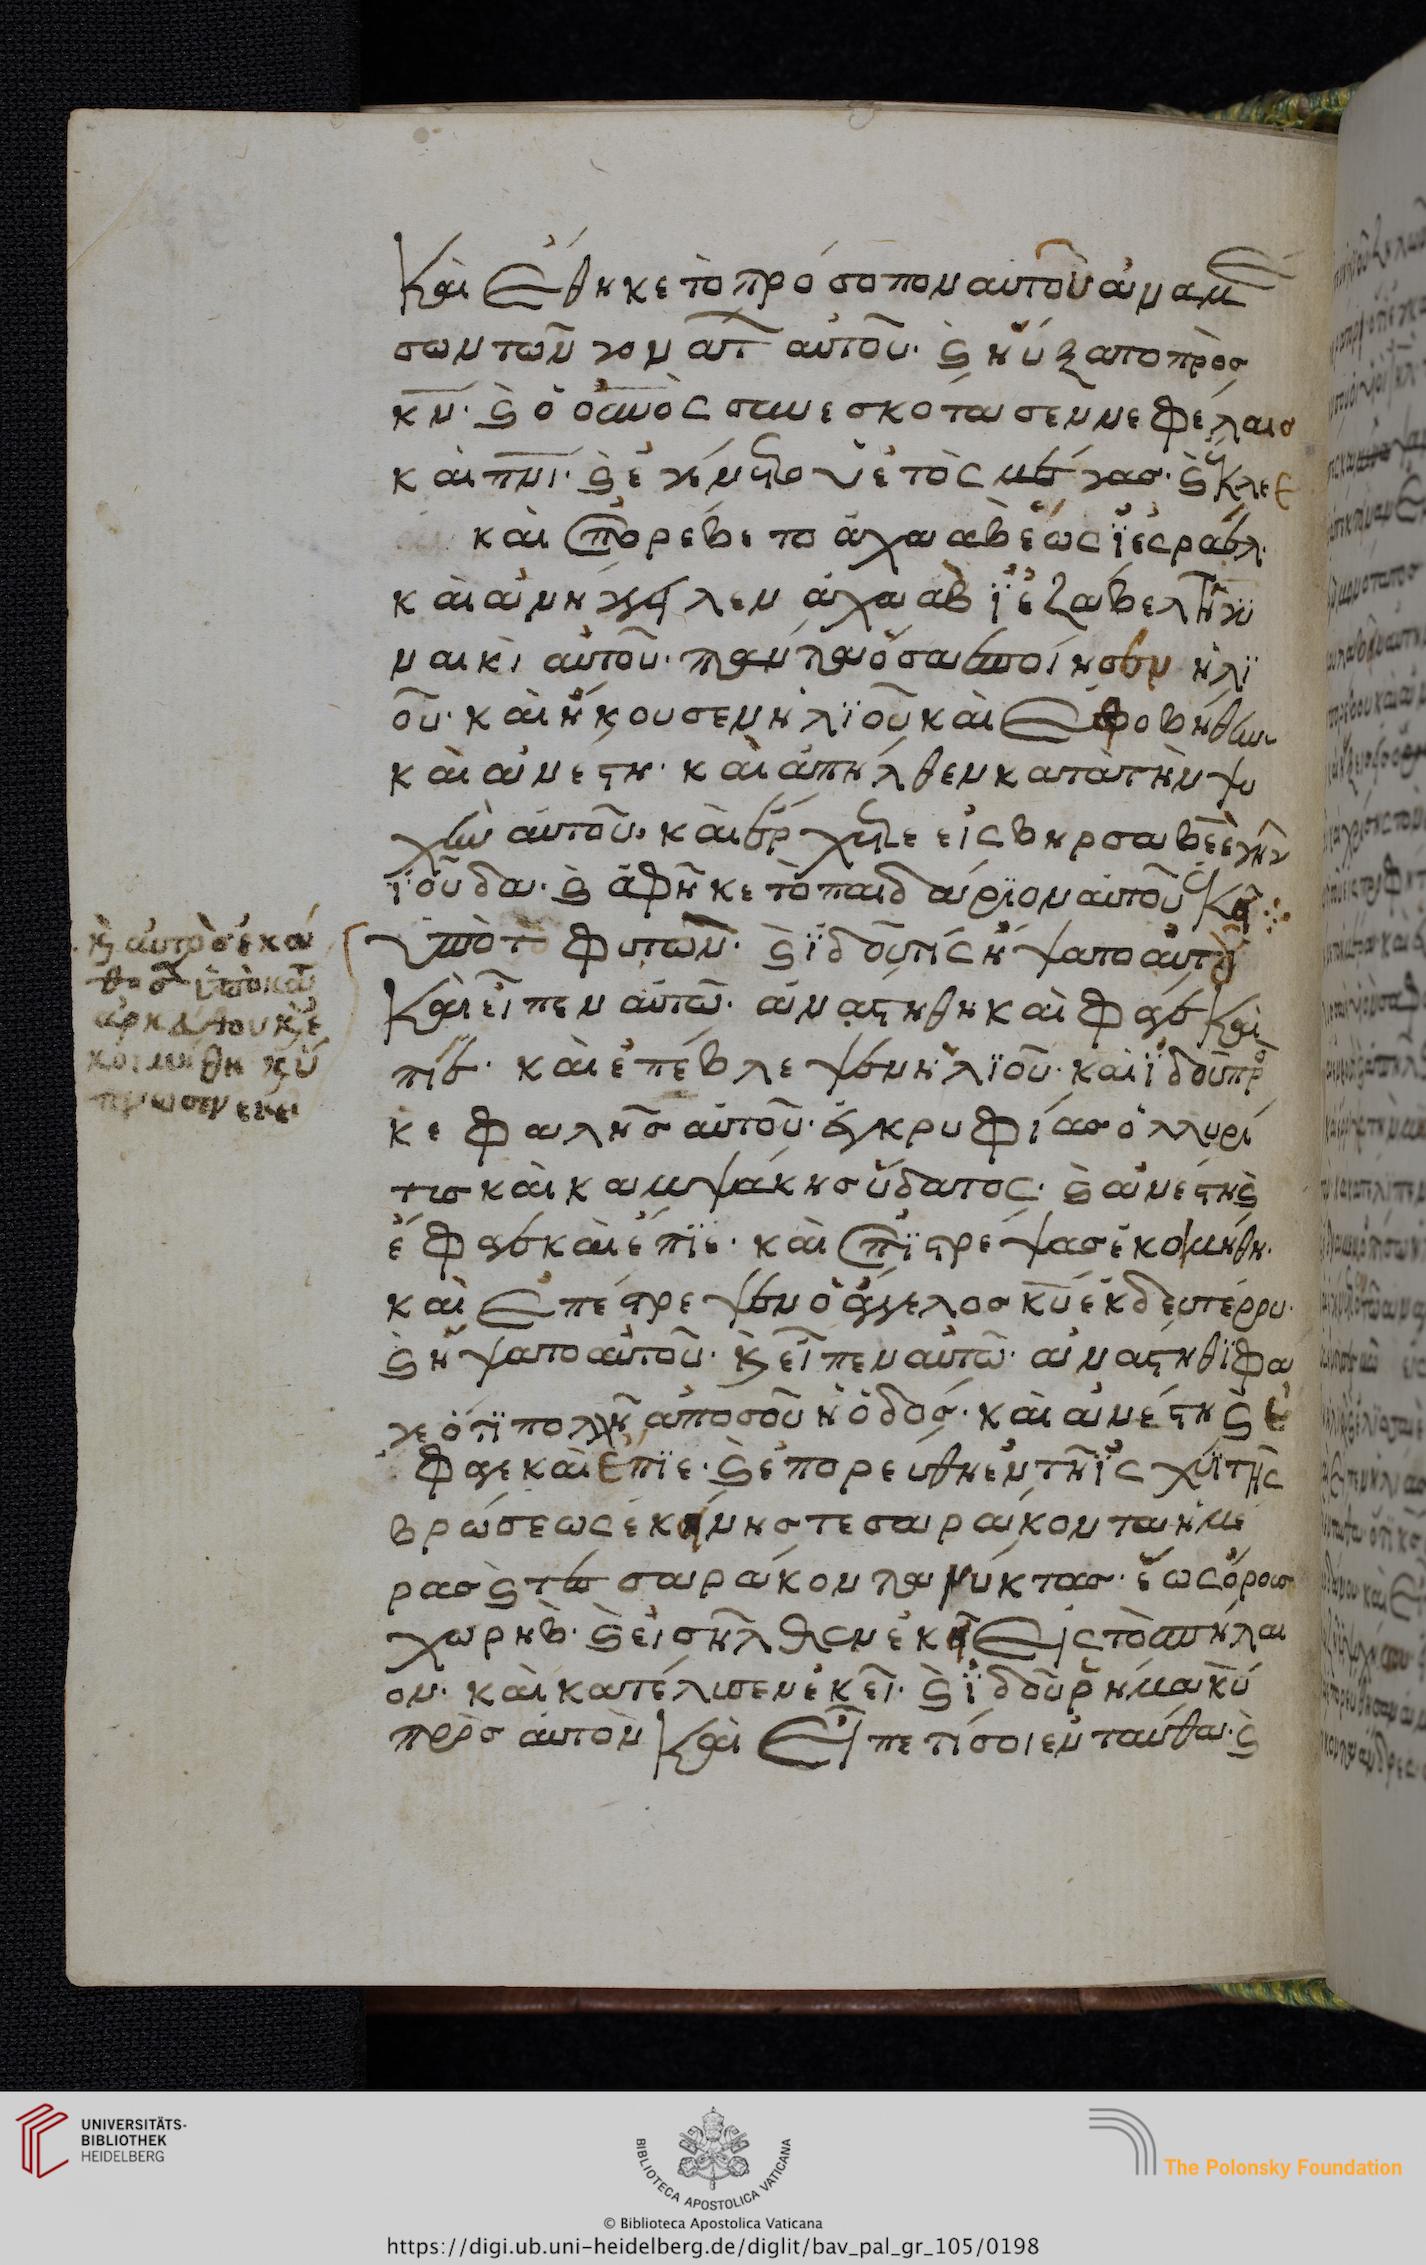 Καὶ ἔθηκε τὸ πρόσοπον αὐτοῦ ἀναμέ
σων τῶν γονάτ αὐτοῦ· ϗ ηὔξατο πρὸσ
κν· ϗ ὁ οὐνὸς συνεσκότασεν νεφέλαισ
καὶ πνι· ϗ ἐγένετο ὑετὸς μέγασ· ϗ ἔκλεε
καὶ ἐπορέβετο ἀχαὰβ ἕως ἰεσραέλ·
καὶ ἀνήγγειλεν ἀχαὰβ ἰεζάβελ τῆ γυ
ναικὶ αὐτοῦ· πάντα ὅσα ἐποίησεν ἠλι
οῦ· καὶ ἤκουσεν ἠλιοῦ καὶ ἐφοβήθην
καὶ ἀνέστη· καὶ ἀπήλθεν κατὰ τὴν ψυ
χὴν αὐτοῦ· καὶ ἔρχεται εἰς βηρσαβεὲ γῆν
ἰοῦδα· ϗ ἀφῆκε τὸ παιδάριον αὐτοῦ ἐκεῖ
ὑπὸ τὸ φυτὼν· ϗ ἰδοῦ τίς ἥψατο αὐτοῦ
Καὶ εἶπεν αὐτῶ· ἀνάστηθη καὶ φάγε καὶ
πίε· καὶ ἐπέβλεψεν ἠλιοῦ· καὶ ἰδοῦ πρὸ
κεφαλῆσ αὐτοῦ· ἐγκρυφίασ ὀλλυρί
τισ καὶ καμψάκησ ὕδατος· ϗ ἀνέστη ϗ
ἔφαγε καὶ ἔπιε· καὶ ἐπιστρέψασ ἐκομήθη·
καὶ ἐπέστρεψεν ὁ ἄγγελοσ κυ ἐκ δευτέρου·
ϗ ἥψατο αὐτοῦ· ϗ εἶπεν αὐτῶ· ἀνάστηθι φά
γε ὅτι πολλῆ ἀπὸ σοῦ ἡ ὁδόσ· καὶ ἀνέστη ϗ ἔ
φαγε καὶ ἔπιε· ϗ ἐπορεύθη ἐν τῆ ἰσχύι τῆς
βρώσεως ἐκείνησ τεσαράκοντα ἡμέ
ρασ ϗ τεσαράκοντα νύκτασ· ἕως ὄρουσ
χωρήβ· ϗ εἰσῆλθεν ἐκεῖ εἰς τὸ σπήλαι
ον· καὶ κατέλυσεν ἐκεῖ· ϗ ἰδοῦ ῥήμα κυ
πρὸσ αὐτὸν Καὶ εἶπε τί σοι ἐνταύθα· ϗ
ϗ αὐτὸσ ἐκά
θησεν ὑποκάτ
ἀρκέθου ϗ ἐ
κοιμήθη ϗ ὕ
πνωσεν ἐκεῖ
UNIVERSITÄTS-
BIBLIOTHEK
HEIDELBERG
BIBLIOTECA APOSTOLICA VATICANA
The Polonsky Foundation
© Biblioteca Apostolica Vaticana
https://digi.ub.uni-heidelberg.de/diglit/bav_pal_gr_105/0198